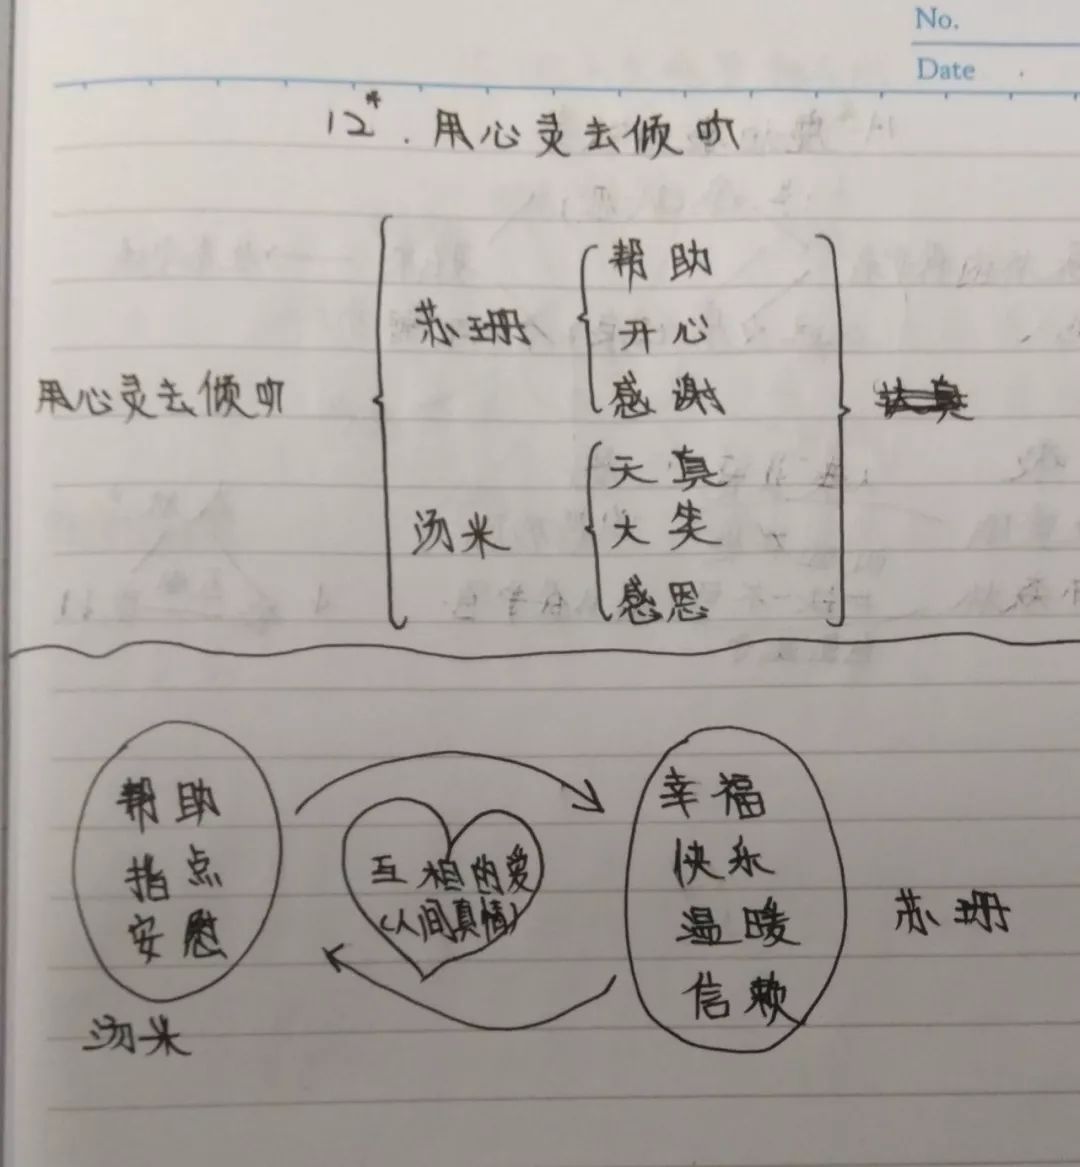 No.
Date
12*.用心灵去倾听
帮助
苏珊 开心
感谢
用心灵去倾听
天真
汤米 大失
感恩
帮助
指点
安慰
汤米
互相的爱
(人间真情)
幸福
快乐
温暖
信赖
苏珊